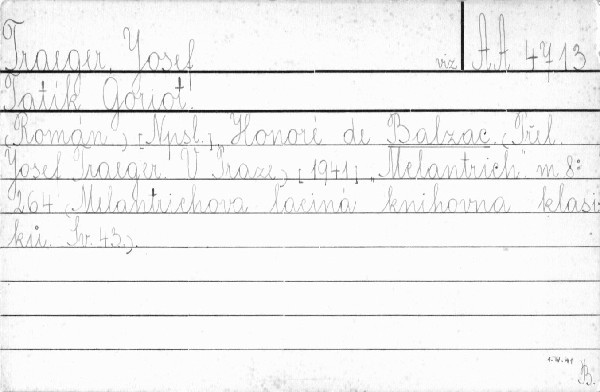 Traeger, Josef viz AA 4713
Tatík Goriot.
(Román). [Npsl.] Honoré de Balzac. (Přel.
Josef Traeger. V Praze), [1941], "Melantrich" m 8:
264 (Melantrichova laciná knihovna klasi-
ků. Sv. 43.).
B.